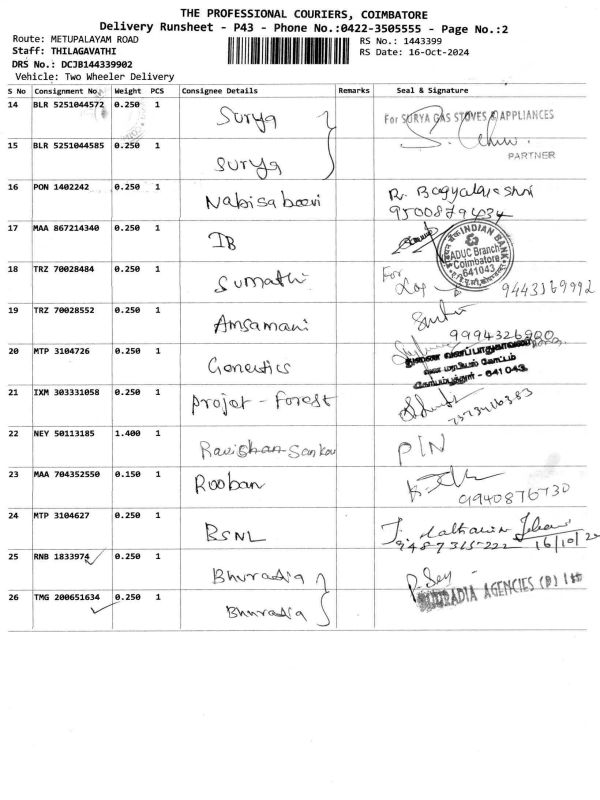 THE PROFESSIONAL COURIERS, COIMBATORE
Delivery Runsheet - P43 - Phone No.:0422-3505555 - Page No.:2
Route: METUPALAYAM ROAD
RS No.: 1443399
Staff: THILAGAVATHI
RS Date: 16-Oct-2024
DRS No.: DCJB144339902
Vehicle: Two Wheeler Delivery
S No Consignment No. Weight PCS Consignee Details Remarks Seal & Signature
14 BLR 5251044572 0.250 1 Surya For SURYA GAS STOVES & APPLIANCES
PARTNER
15 BLR 5251044585 0.250 1 Surya
16 PON 1402242 0.250 1 Nabisabeevi R. Bagyalakshmi
9500879434
17 MAA 867214340 0.250 1 IB INDIAN BANK
ADUC Branch
Coimbatore
641043
18 TRZ 70028484 0.250 1 Sumathi For
9443169992
19 TRZ 70028552 0.250 1 Amsamani
9994326900
20 MTP 3104726 0.250 1 Genetics
துணை வனப்பாதுகாவலர்
வன மரபியல் கோட்டம்
கோயம்புத்தூர் - 641 043
21 IXM 303331058 0.250 1 Projet - Forest
7373416383
22 NEY 50113185 1.400 1 Ravishan Sankar PIN
23 MAA 704352550 0.150 1 Rooban
9940876730
24 MTP 3104627 0.250 1 BSNL
9487315222 16/10/24
25 RNB 1833974 0.250 1 Bhuradia
26 TMG 200651634 0.250 1 Bhuradia BHURADIA AGENCIES (P) Ltd